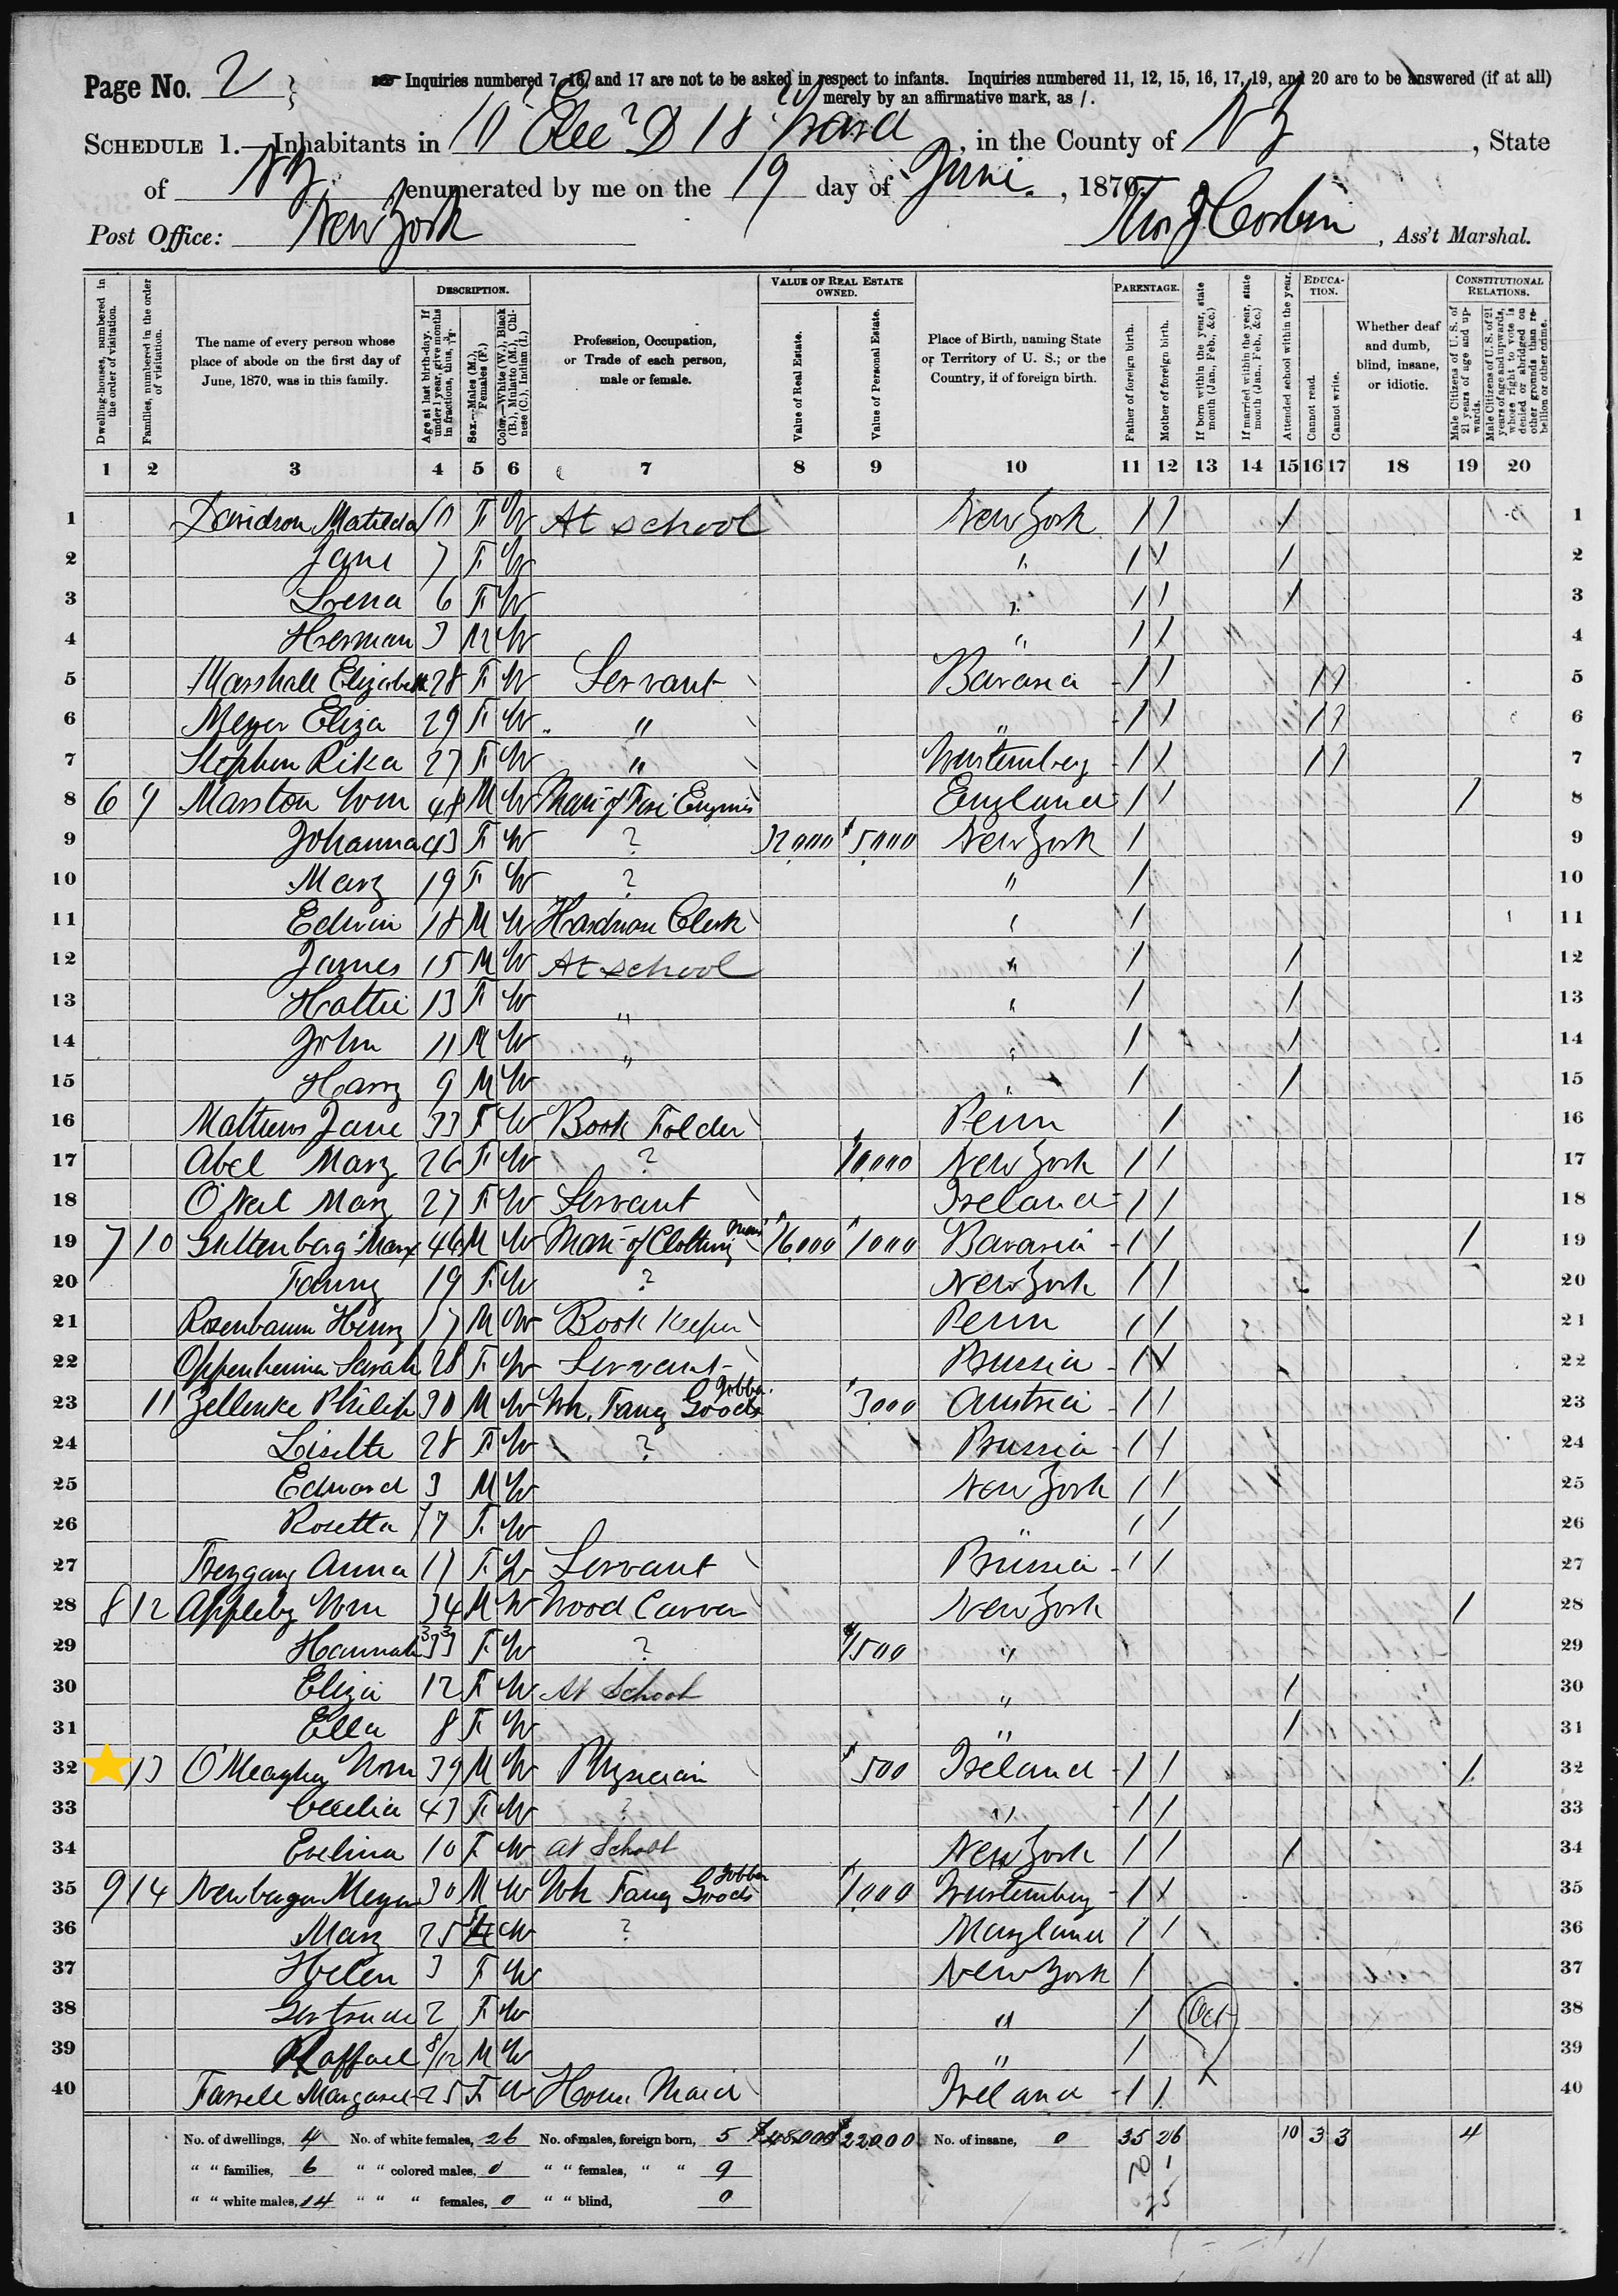 Page No. 2
Inquiries numbered 7, 16, and 17 are not to be asked in respect to infants. Inquiries numbered 11, 12, 15, 16, 17, 19, and 20 are to be answered (if at all)
merely by an affirmative mark, as /.
SCHEDULE 1.—Inhabitants in 10 Elec D 18 Ward, in the County of NY, State
of NY, enumerated by me on the 19 day of June, 1870.
Post Office: New York Thos J Corbin, Ass't Marshal.
Dwelling-houses, numbered in the order of visitation.
Families, numbered in the order of visitation.
The name of every person whose place of abode on the first day of June, 1870, was in this family.
DESCRIPTION.
Age at last birth-day. If under 1 year, give months in fractions, thus, 3/12.
Sex.—Males (M.), Females (F.)
Color.—White (W.), Black (B.), Mulatto (M.), Chinese (C.), Indian (I.)
Profession, Occupation, or Trade of each person, male or female.
VALUE OF REAL ESTATE OWNED.
Value of Real Estate.
Value of Personal Estate.
Place of Birth, naming State or Territory of U. S.; or the Country, if of foreign birth.
PARENTAGE.
Father of foreign birth.
Mother of foreign birth.
If born within the year, state month (Jan., Feb., &c.)
If married within the year, state month (Jan., Feb., &c.)
Attended school within the year.
EDUCATION.
Cannot read.
Cannot write.
Whether deaf and dumb, blind, insane, or idiotic.
CONSTITUTIONAL RELATIONS.
Male Citizens of U. S. of 21 years of age and upwards.
Male Citizens of U. S. of 21 years of age and upwards, whose right to vote is denied or abridged on other grounds than rebellion or other crime.
1 2 3 4 5 6 7 8 9 10 11 12 13 14 15 16 17 18 19 20
1 Davidson Matilda 10 F W At school New York / / / 1
2 Jane 7 F W " / / / 2
3 Lena 6 F W " / / / 3
4 Herman 3 M W " / / 4
5 Marshall Elizabeth 28 F W Servant Bavaria / / / / 5
6 Meyer Eliza 29 F W " " / / / / 6
7 Stephen Rika 27 F W " Wurtemberg / / / / 7
8 6 9 Marston Wm 48 M W Man of Fire Engines England / / / 8
9 Johanna 43 F W ? 32,000 $5,000 New York / 9
10 Mary 19 F W ? " / 10
11 Edwin 18 M W Hardware Clerk " / 11
12 James 15 M W At school " / / 12
13 Hattie 13 F W " " / / 13
14 John 11 M W " " / / 14
15 Harry 9 M W " / / 15
16 Mathews Jane 33 F W Book Folder Penn / 16
17 Abel Mary 26 F W ? $10,000 New York / / 17
18 O'Neil Mary 27 F W Servant Ireland / / 18
19 7 10 Guttenberg Marx 46 M W Man of Clothing $16,000 $1,000 Bavaria / / / 19
20 Fanny 19 F W ? New York / / 20
21 Rosenbaum Henry 17 M W Book Keeper Penn / / 21
22 Oppenheimer Sarah 28 F W Servant Prussia / / 22
23 11 Zellenke Philip 30 M W Wh. Fancy Goods Jobber $3,000 Austria / / 23
24 Lisette 28 F W ? Prussia / / 24
25 Edward 3 M W New York / / 25
26 Rosetta F W " / / 26
27 Anna 17 F W Servant Prussia / / 27
28 8 12 Appleby Wm 34 M W Wood Carver New York / 28
29 Hannah 33 F W ? $1,500 " 29
30 Eliza 12 F W At School " / 30
31 Ella 8 F W " / 31
32 13 O'Meagher Wm 39 M W Physician $500 Ireland / / / 32
33 Cecelia 43 F W ? " / / 33
34 Evelina 10 F W at School New York / / / 34
35 9 14 Newberger Meyer 30 M W Wh Fancy Goods Jobber $1,000 Wurtemberg / / 35
36 Mary 25 F W ? Maryland / / 36
37 Helen 3 F W New York / 37
38 Gertrude 2 F W " / Oct 38
39 Raffael 8/12 M W " / 39
40 Farrell Margaret 25 F W House Maid Ireland / / 40
No. of dwellings, 4 No. of white females, 26 No. of males, foreign born, 5 $48,000 $22,000 No. of insane, 0 35 26 10 3 3 4
" " families, 6 " " colored males, 0 " " females, " " 9
" " white males, 14 " " " females, 0 " " blind, 0